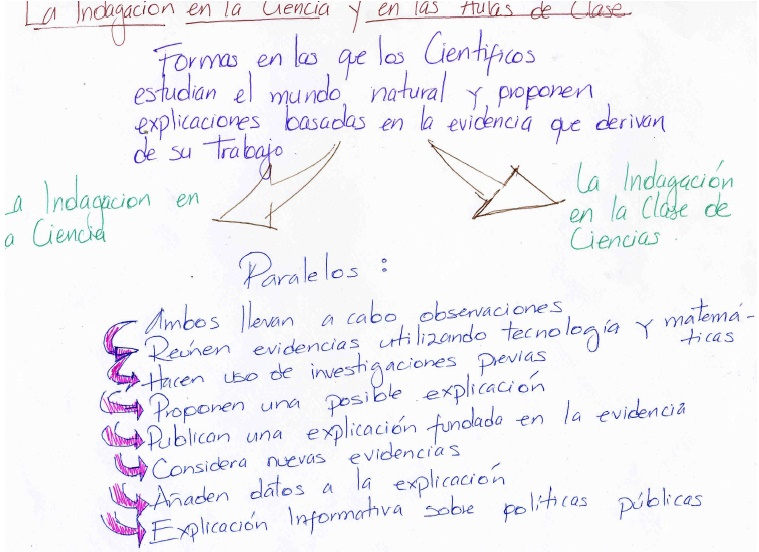 La Indagacion en la Ciencia y en las Aulas de Clase
Formas en las qe los Cientificos
estudian el mundo natural y proponen
explicaciones basadas en la evidencia que derivan
de su Trabajo.
a Indagacion en
a Ciencia
La Indagación
en la Clase de
Ciencias.
Paralelos :
Ambos llevan a cabo observaciones
Reúnen evidencias utilizando tecnología y matemá-
ticas
Hacen uso de investigaciones previas
Proponen una posible explicación
Publican una explicación fundada en la evidencia
Considera nuevas evidencias
Añaden datos a la explicación
Explicación Informativa sobre políticas públicas